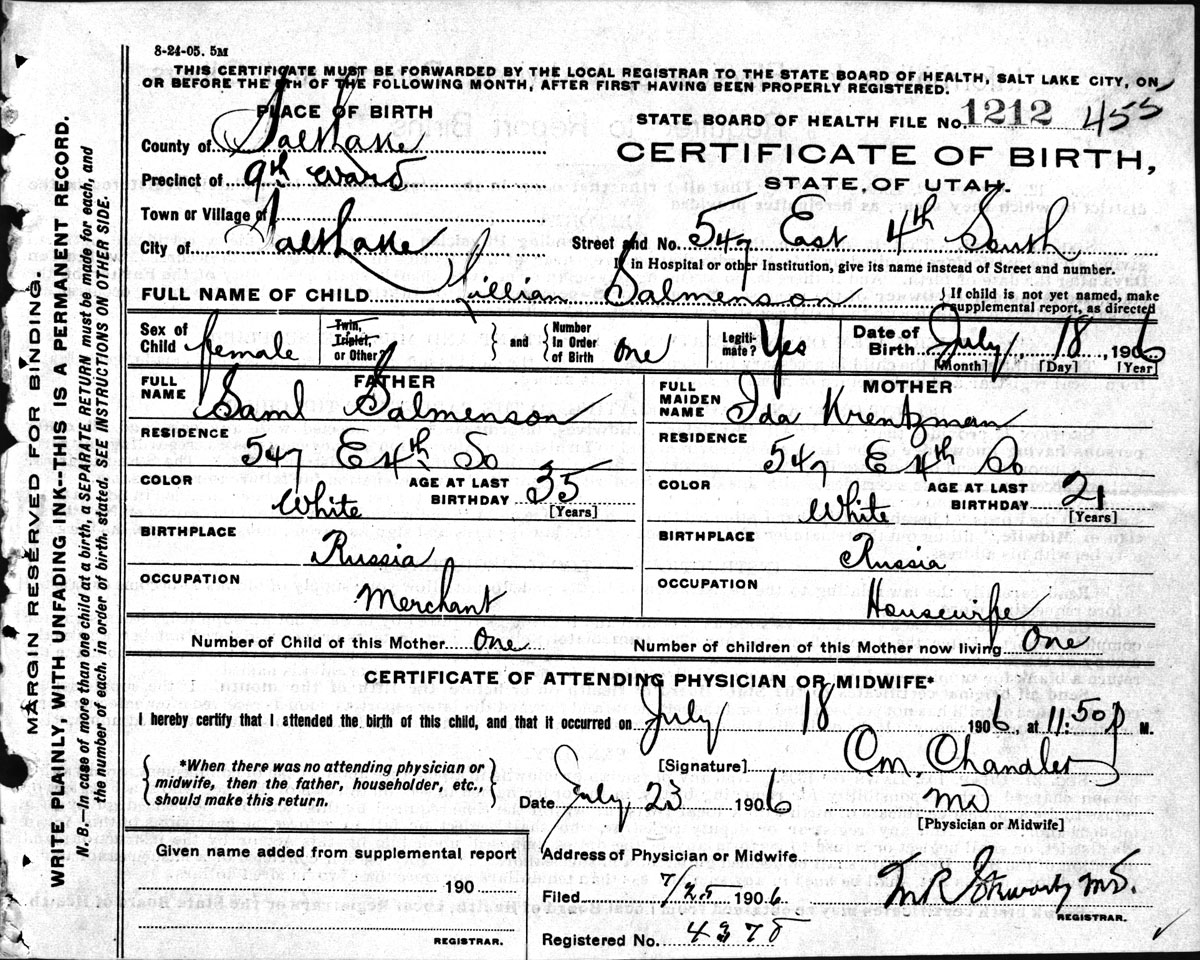 8-24-05. 5M
THIS CERTIFICATE MUST BE FORWARDED BY THE LOCAL REGISTRAR TO THE STATE BOARD OF HEALTH, SALT LAKE CITY, ON
OR BEFORE THE 5TH OF THE FOLLOWING MONTH, AFTER FIRST HAVING BEEN PROPERLY REGISTERED.
PLACE OF BIRTH
STATE BOARD OF HEALTH FILE No. 1212 455
County of Salt Lake
CERTIFICATE OF BIRTH,
Precinct of 9th ward
STATE OF UTAH.
Town or Village of
City of Salt Lake
Street and No. 547 East 4th South
If in Hospital or other Institution, give its name instead of Street and number.
FULL NAME OF CHILD Lillian Salmenson
{ If child is not yet named, make supplemental report, as directed
Sex of Child female
Twin, Triplet, or Other } and { Number In Order of Birth one
Legitimate? Yes
Date of Birth July 18, 1906
[Month] [Day] [Year]
FATHER
MOTHER
FULL NAME Saml Salmenson
FULL MAIDEN NAME Ida Krentzman
RESIDENCE 547 E 4th So
RESIDENCE 547 E 4th So
COLOR White AGE AT LAST BIRTHDAY 35 [Years]
COLOR White AGE AT LAST BIRTHDAY 21 [Years]
BIRTHPLACE Russia
BIRTHPLACE Russia
OCCUPATION Merchant
OCCUPATION Housewife
Number of Child of this Mother one
Number of children of this Mother now living One
CERTIFICATE OF ATTENDING PHYSICIAN OR MIDWIFE*
I hereby certify that I attended the birth of this child, and that it occurred on July 18 1906, at 11:50 P M.
{ *When there was no attending physician or midwife, then the father, householder, etc., should make this return. }
[Signature] CM. Chandler
Date July 23 1906
MD
[Physician or Midwife]
Given name added from supplemental report
190
REGISTRAR.
Address of Physician or Midwife
Filed 7/25 1906
M.D.
REGISTRAR.
Registered No. 4378
MARGIN RESERVED FOR BINDING.
WRITE PLAINLY, WITH UNFADING INK--THIS IS A PERMANENT RECORD.
N. B.—In case of more than one child at a birth, a SEPARATE RETURN must be made for each, and
the number of each, in order of birth, stated. SEE INSTRUCTIONS ON OTHER SIDE.